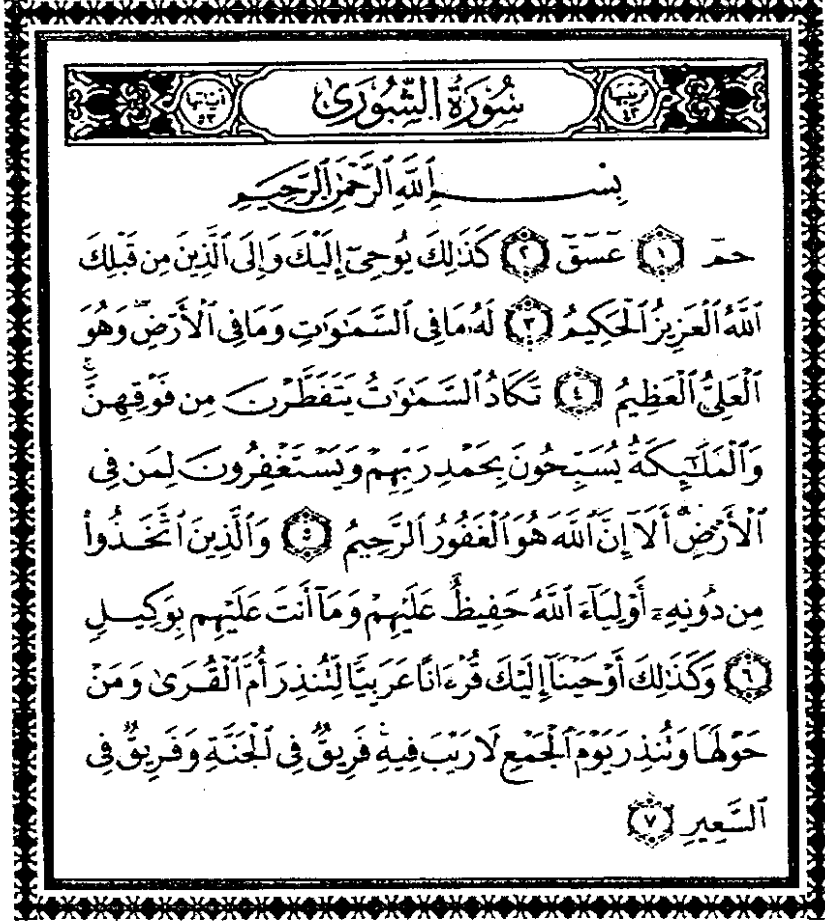 ترتيبها ٤٢ سُورَةُ الشُّورَىٰ آياتها ٥٣
بِسْمِ ٱللَّهِ ٱلرَّحْمَٰنِ ٱلرَّحِيمِ
حمٓ ١ عٓسٓقٓ ٢ كَذَٰلِكَ يُوحِىٓ إِلَيْكَ وَإِلَى ٱلَّذِينَ مِن قَبْلِكَ
ٱللَّهُ ٱلْعَزِيزُ ٱلْحَكِيمُ ٣ لَهُۥ مَا فِى ٱلسَّمَٰوَٰتِ وَمَا فِى ٱلْأَرْضِ ۖ وَهُوَ
ٱلْعَلِىُّ ٱلْعَظِيمُ ٤ تَكَادُ ٱلسَّمَٰوَٰتُ يَتَفَطَّرْنَ مِن فَوْقِهِنَّ ۚ
وَٱلْمَلَٰٓئِكَةُ يُسَبِّحُونَ بِحَمْدِ رَبِّهِمْ وَيَسْتَغْفِرُونَ لِمَن فِى
ٱلْأَرْضِ ۗ أَلَآ إِنَّ ٱللَّهَ هُوَ ٱلْغَفُورُ ٱلرَّحِيمُ ٥ وَٱلَّذِينَ ٱتَّخَذُوا۟
مِن دُونِهِۦٓ أَوْلِيَآءَ ٱللَّهُ حَفِيظٌ عَلَيْهِمْ وَمَآ أَنتَ عَلَيْهِم بِوَكِيلٍ
٦ وَكَذَٰلِكَ أَوْحَيْنَآ إِلَيْكَ قُرْءَانًا عَرَبِيًّا لِّتُنذِرَ أُمَّ ٱلْقُرَىٰ وَمَنْ
حَوْلَهَا وَتُنذِرَ يَوْمَ ٱلْجَمْعِ لَا رَيْبَ فِيهِ ۚ فَرِيقٌ فِى ٱلْجَنَّةِ وَفَرِيقٌ فِى
ٱلسَّعِيرِ ٧